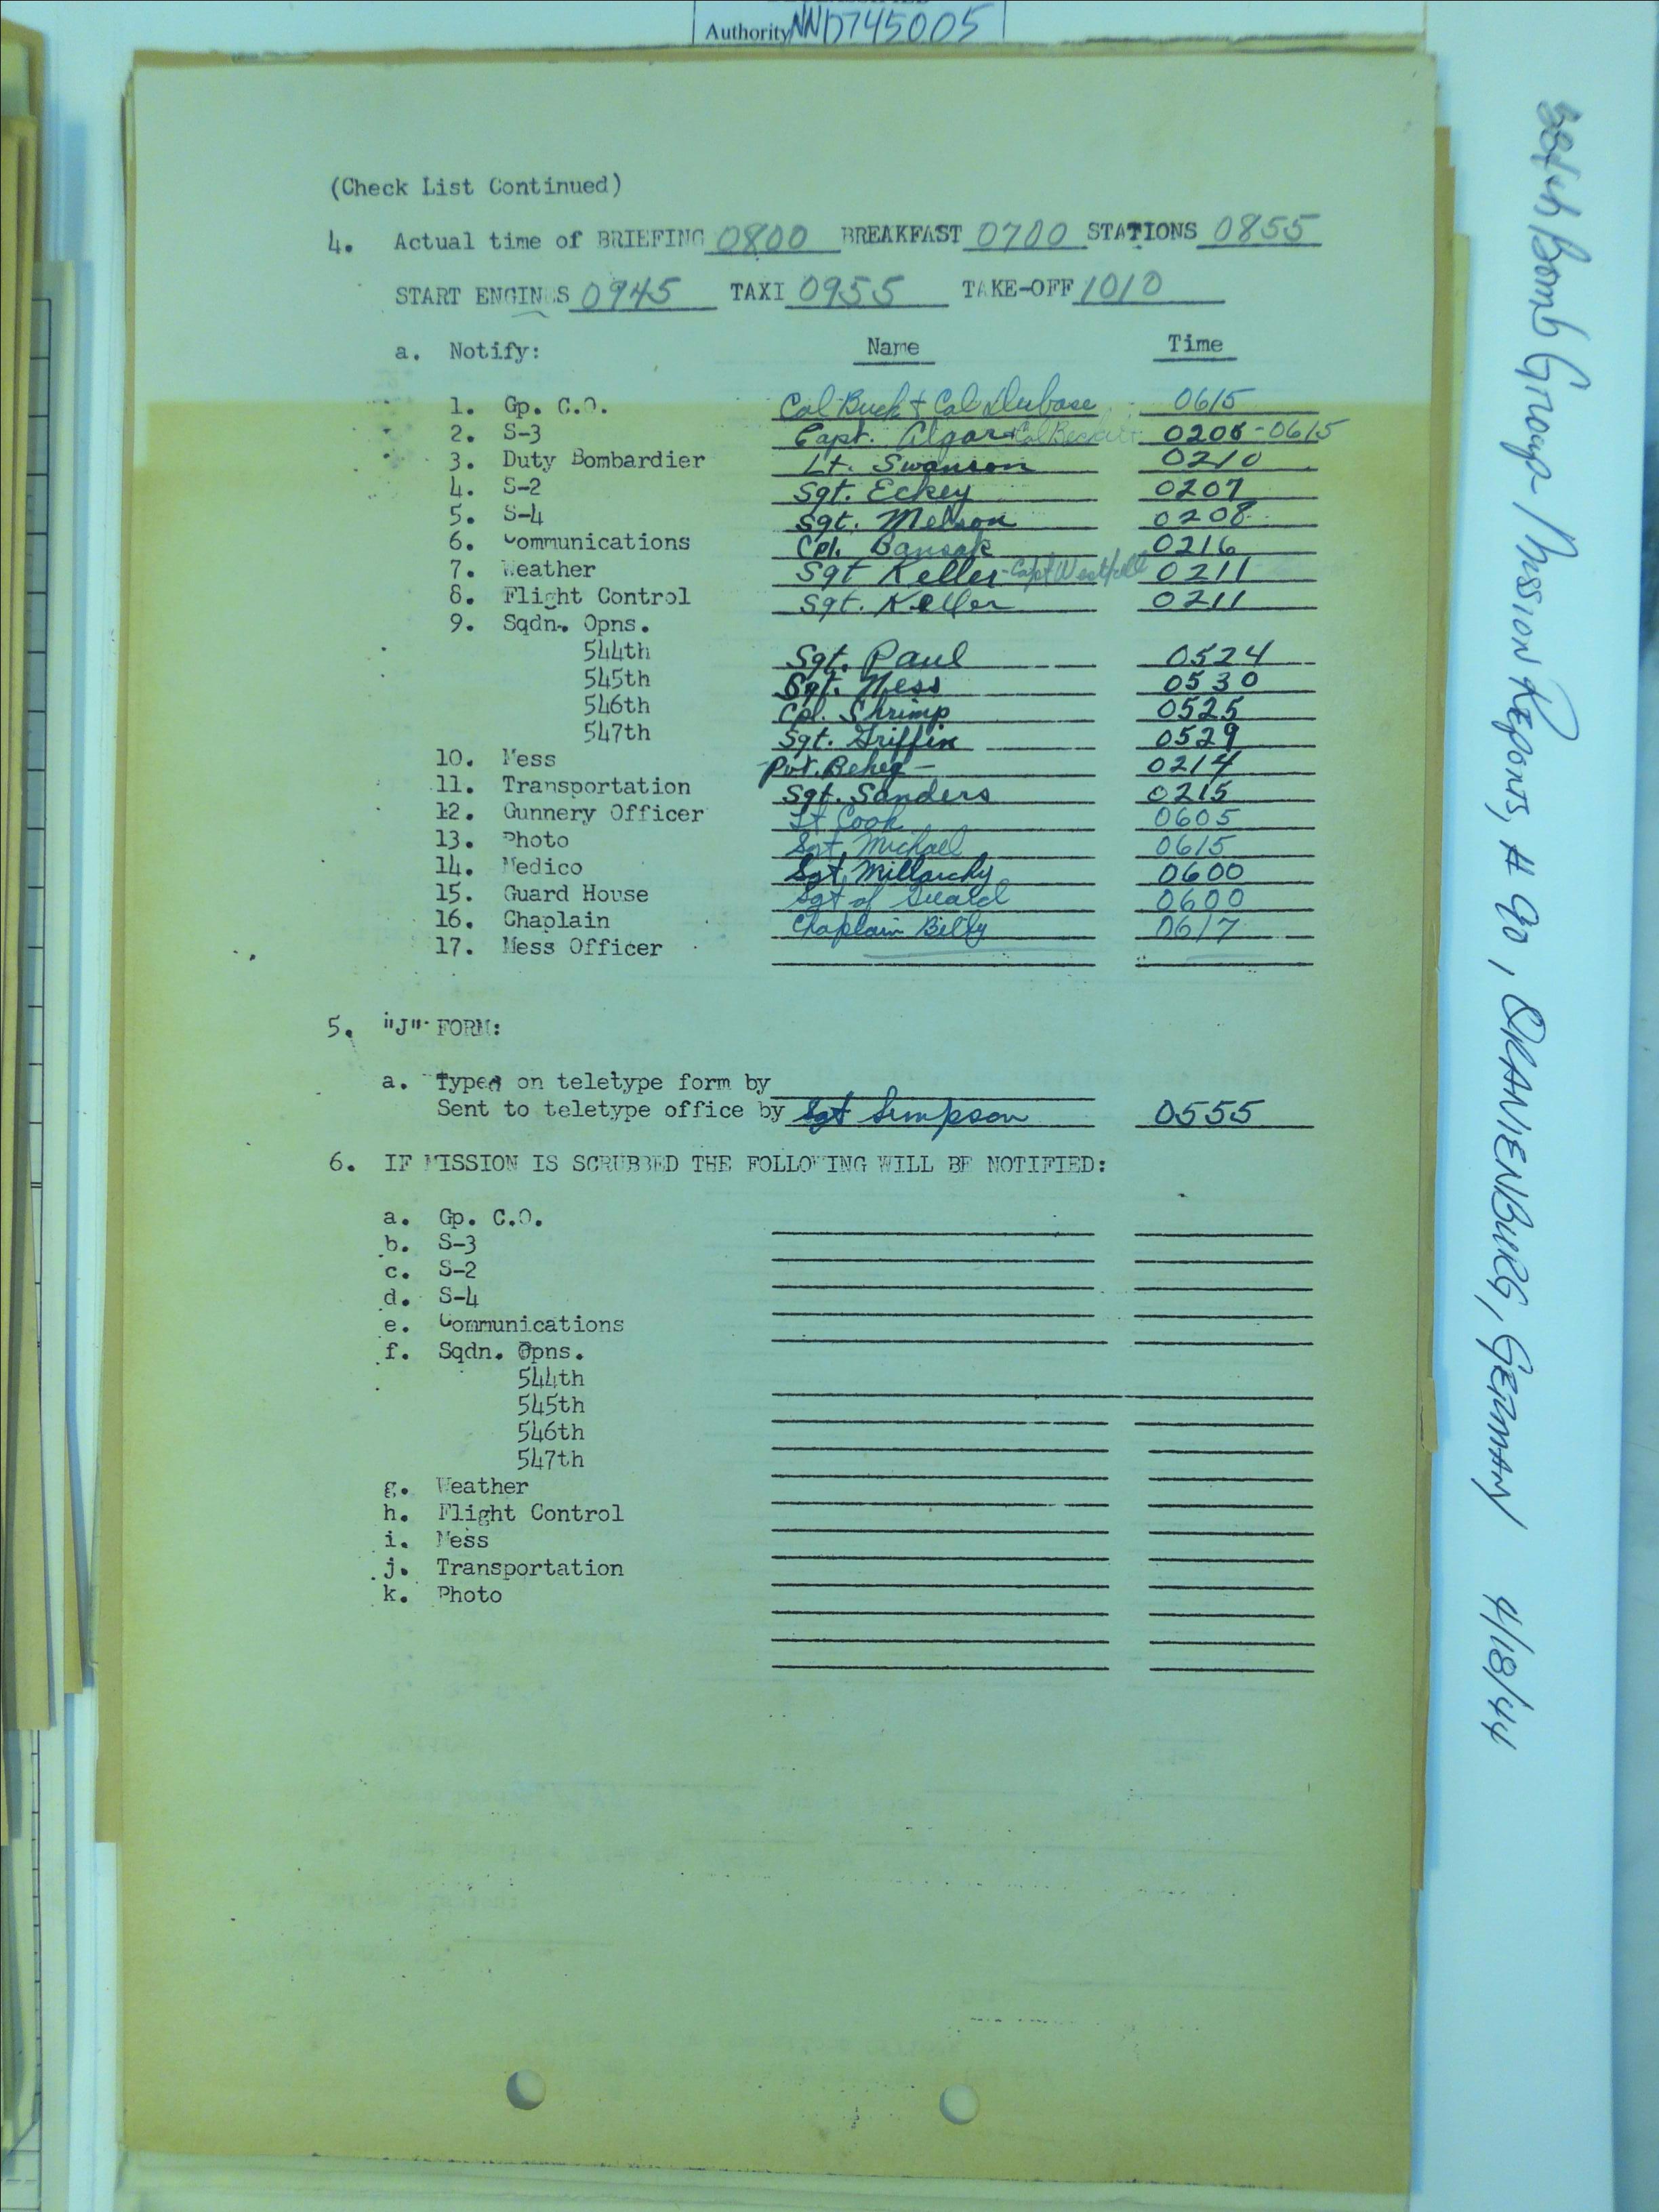 Authority NND745005
(Check List Continued)
4. Actual time of BRIEFING 0800 BREAKFAST 0700 STATIONS 0855
START ENGINES 0945 TAXI 0955 TAKE-OFF 1010
a. Notify: Name Time
1. Gp. C.O. Col Buck & Col Dubose 0615
2. S-3 Capt. Algar 0206-0615
3. Duty Bombardier Lt. Swanson 0210
4. S-2 Sgt. Eckey 0207
5. S-4 Sgt. Melson 0208
6. Communications Cpl. Bansak 0216
7. Weather Sgt Keller - Capt Westfall 0211
8. Flight Control Sgt. Keller 0211
9. Sqdn. Opns.
544th Sgt. Paul 0524
545th Sgt. Ness 0530
546th Cpl. Shrimp 0525
547th Sgt. Griffin 0529
10. Mess Pvt. 0214
11. Transportation Sgt. Sanders 0215
12. Gunnery Officer Lt Cook 0605
13. Photo Sgt. Michael 0615
14. Medico Sgt. 0600
15. Guard House Sgt of Guard 0600
16. Chaplain Chaplain Billy 0617
17. Mess Officer
5. "J" FORM:
a. Typed on teletype form by
Sent to teletype office by Sgt Simpson 0555
6. IF MISSION IS SCRUBBED THE FOLLOWING WILL BE NOTIFIED:
a. Gp. C.O.
b. S-3
c. S-2
d. S-4
e. Communications
f. Sqdn. Opns.
544th
545th
546th
547th
g. Weather
h. Flight Control
i. Mess
j. Transportation
k. Photo
384th Bomb Group Mission Reports, # 90, ORANIENBURG, GERMANY 4/18/44